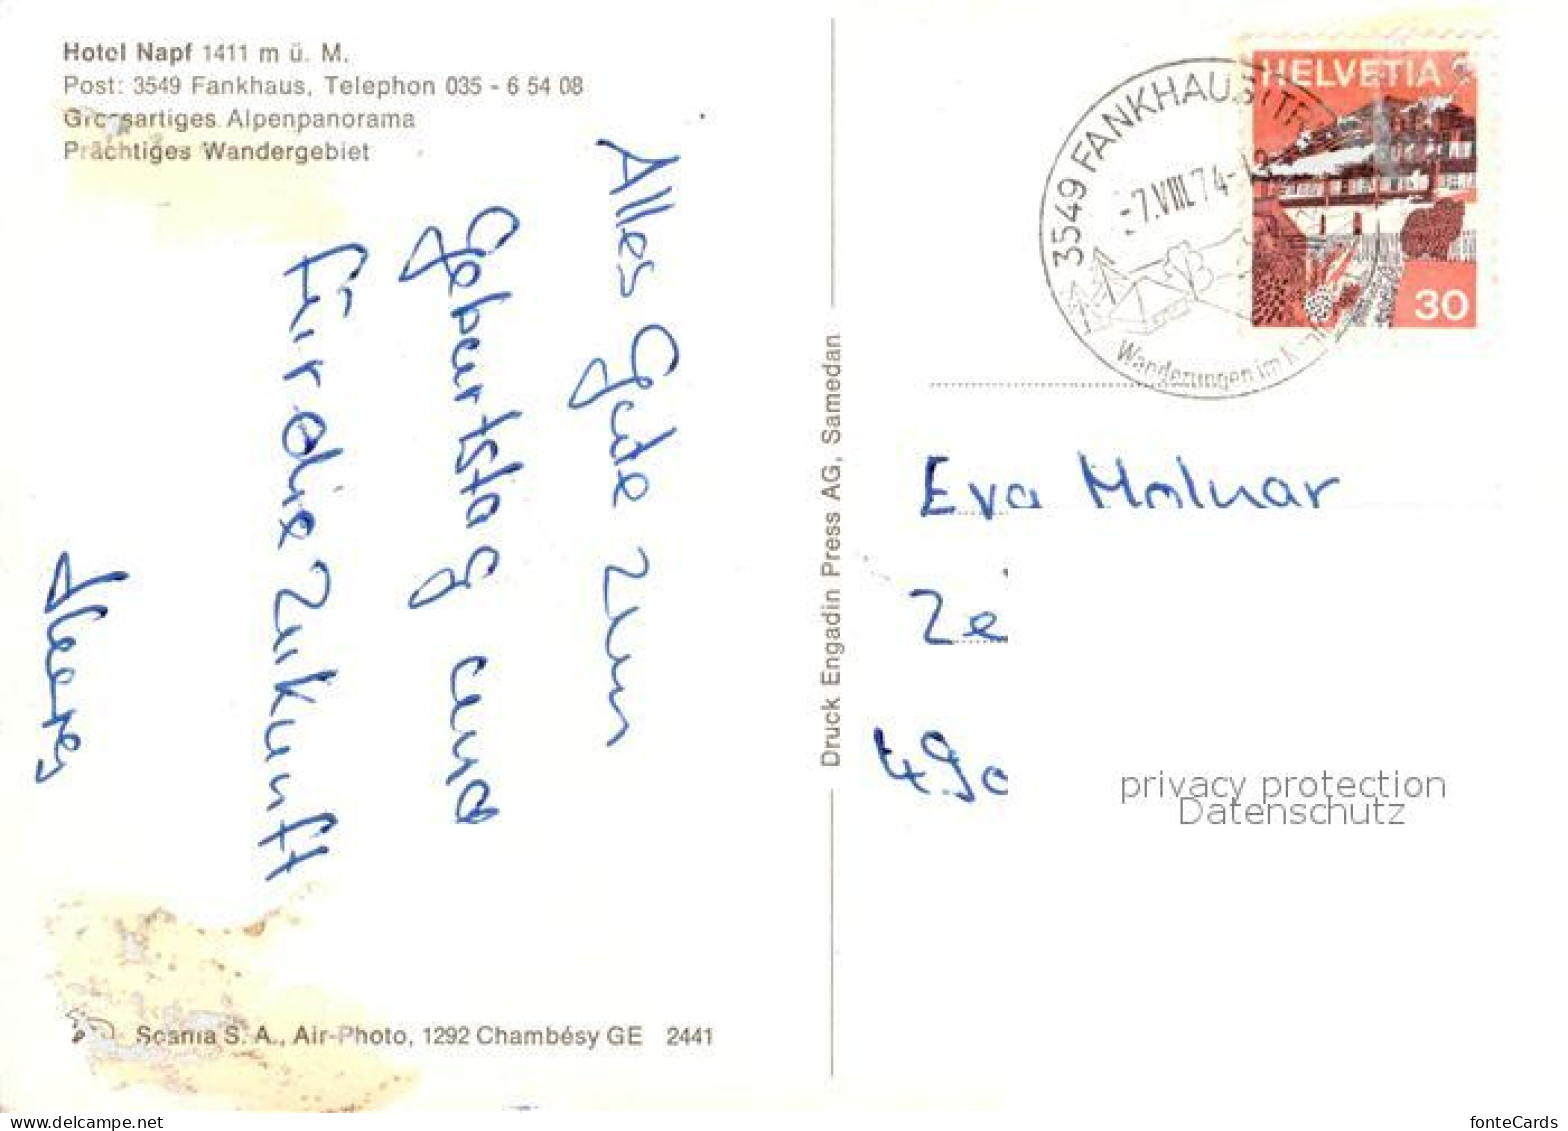 Hotel Napf 1411 m ü. M.
Post: 3549 Fankhaus, Telephon 035 - 6 54 08
Grossartiges Alpenpanorama
Prächtiges Wandergebiet
Alles Gute zum
Geburtstag und
für die Zukunft
Scania S. A., Air-Photo, 1292 Chambésy GE 2441
Druck Engadin Press AG, Samedan
3549 FANKHAUS (TR
-7.VIII.74-
Wanderungen im
HELVETIA
30
Eva Molnar
Ze
490
privacy protection
Datenschutz
www.delcampe.net
fonteCards